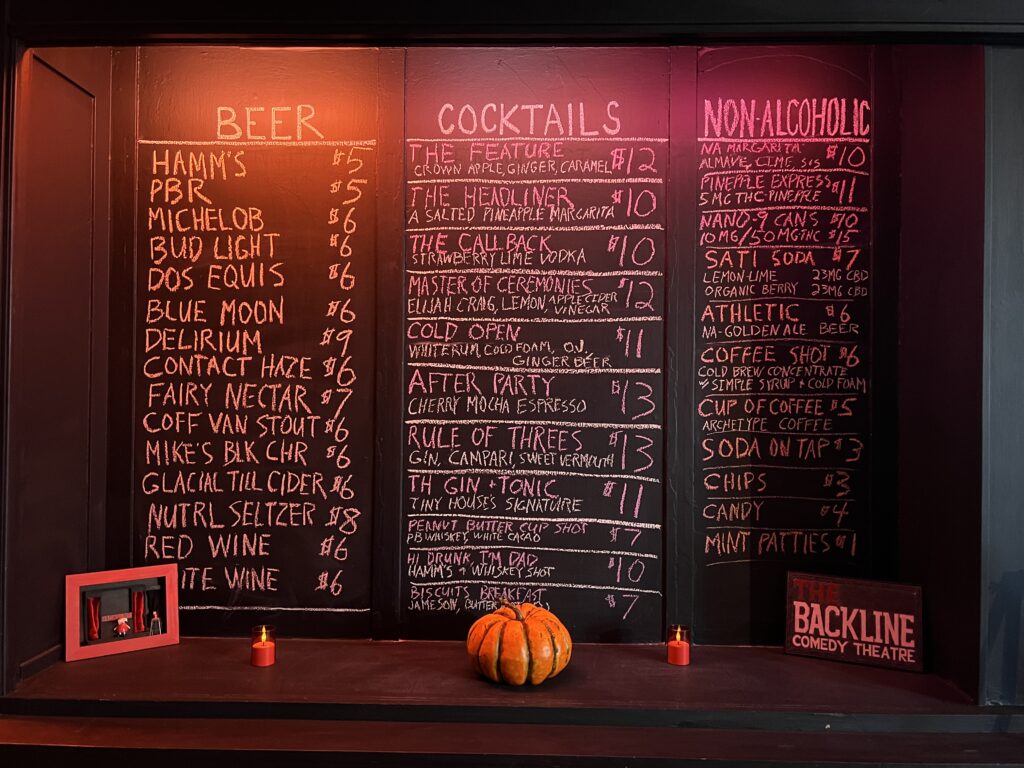 BEER
HAMM'S $5
PBR $5
MICHELOB $6
BUD LIGHT $6
DOS EQUIS $6
BLUE MOON $6
DELIRIUM $9
CONTACT HAZE $6
FAIRY NECTAR $7
COFF VAN STOUT $6
MIKE'S BLK CHR $6
GLACIAL TILL CIDER $6
NUTRL SELTZER $8
RED WINE $6
ITE WINE $6
COCKTAILS
THE FEATURE $12
CROWN APPLE, GINGER, CARAMEL
THE HEADLINER $10
A SALTED PINEAPPLE MARGARITA
THE CALL BACK $10
STRAWBERRY LIME VODKA
MASTER OF CEREMONIES $12
ELIJAH CRAIG, LEMON, APPLE CIDER
VINEGAR
COLD OPEN $11
WHITE RUM, COLD FOAM, OJ,
GINGER BEER
AFTER PARTY $13
CHERRY MOCHA ESPRESSO
RULE OF THREES $13
GIN, CAMPARI, SWEET VERMOUTH
TH GIN + TONIC $11
TINY HOUSE'S SIGNATURE
PEANUT BUTTER CUP SHOT $7
PB WHISKEY, WHITE CACAO
HI DRUNK, I'M DAD $10
HAMM'S + WHISKEY SHOT
BISCUITS BREAKFAST $7
JAMESON, BUTTER
NON-ALCOHOLIC
NA MARGARITA $10
ALMAVE, LIME, S+S
PINEPPLE EXPRESS $11
5 MG THC-PINEPPLE
NANO-9 CANS $10
10MG/50MG THC $15
SATI SODA $7
LEMON-LIME 23MG CBD
ORGANIC BERRY 23MG CBD
ATHLETIC $6
NA-GOLDEN ALE BEER
COFFEE SHOT $6
COLD BREW CONCENTRATE
W/ SIMPLE SYRUP + COLD FOAM
CUP OF COFFEE $5
ARCHETYPE COFFEE
SODA ON TAP $3
CHIPS $3
CANDY $4
MINT PATTIES $1
THE
BACKLINE
COMEDY THEATRE